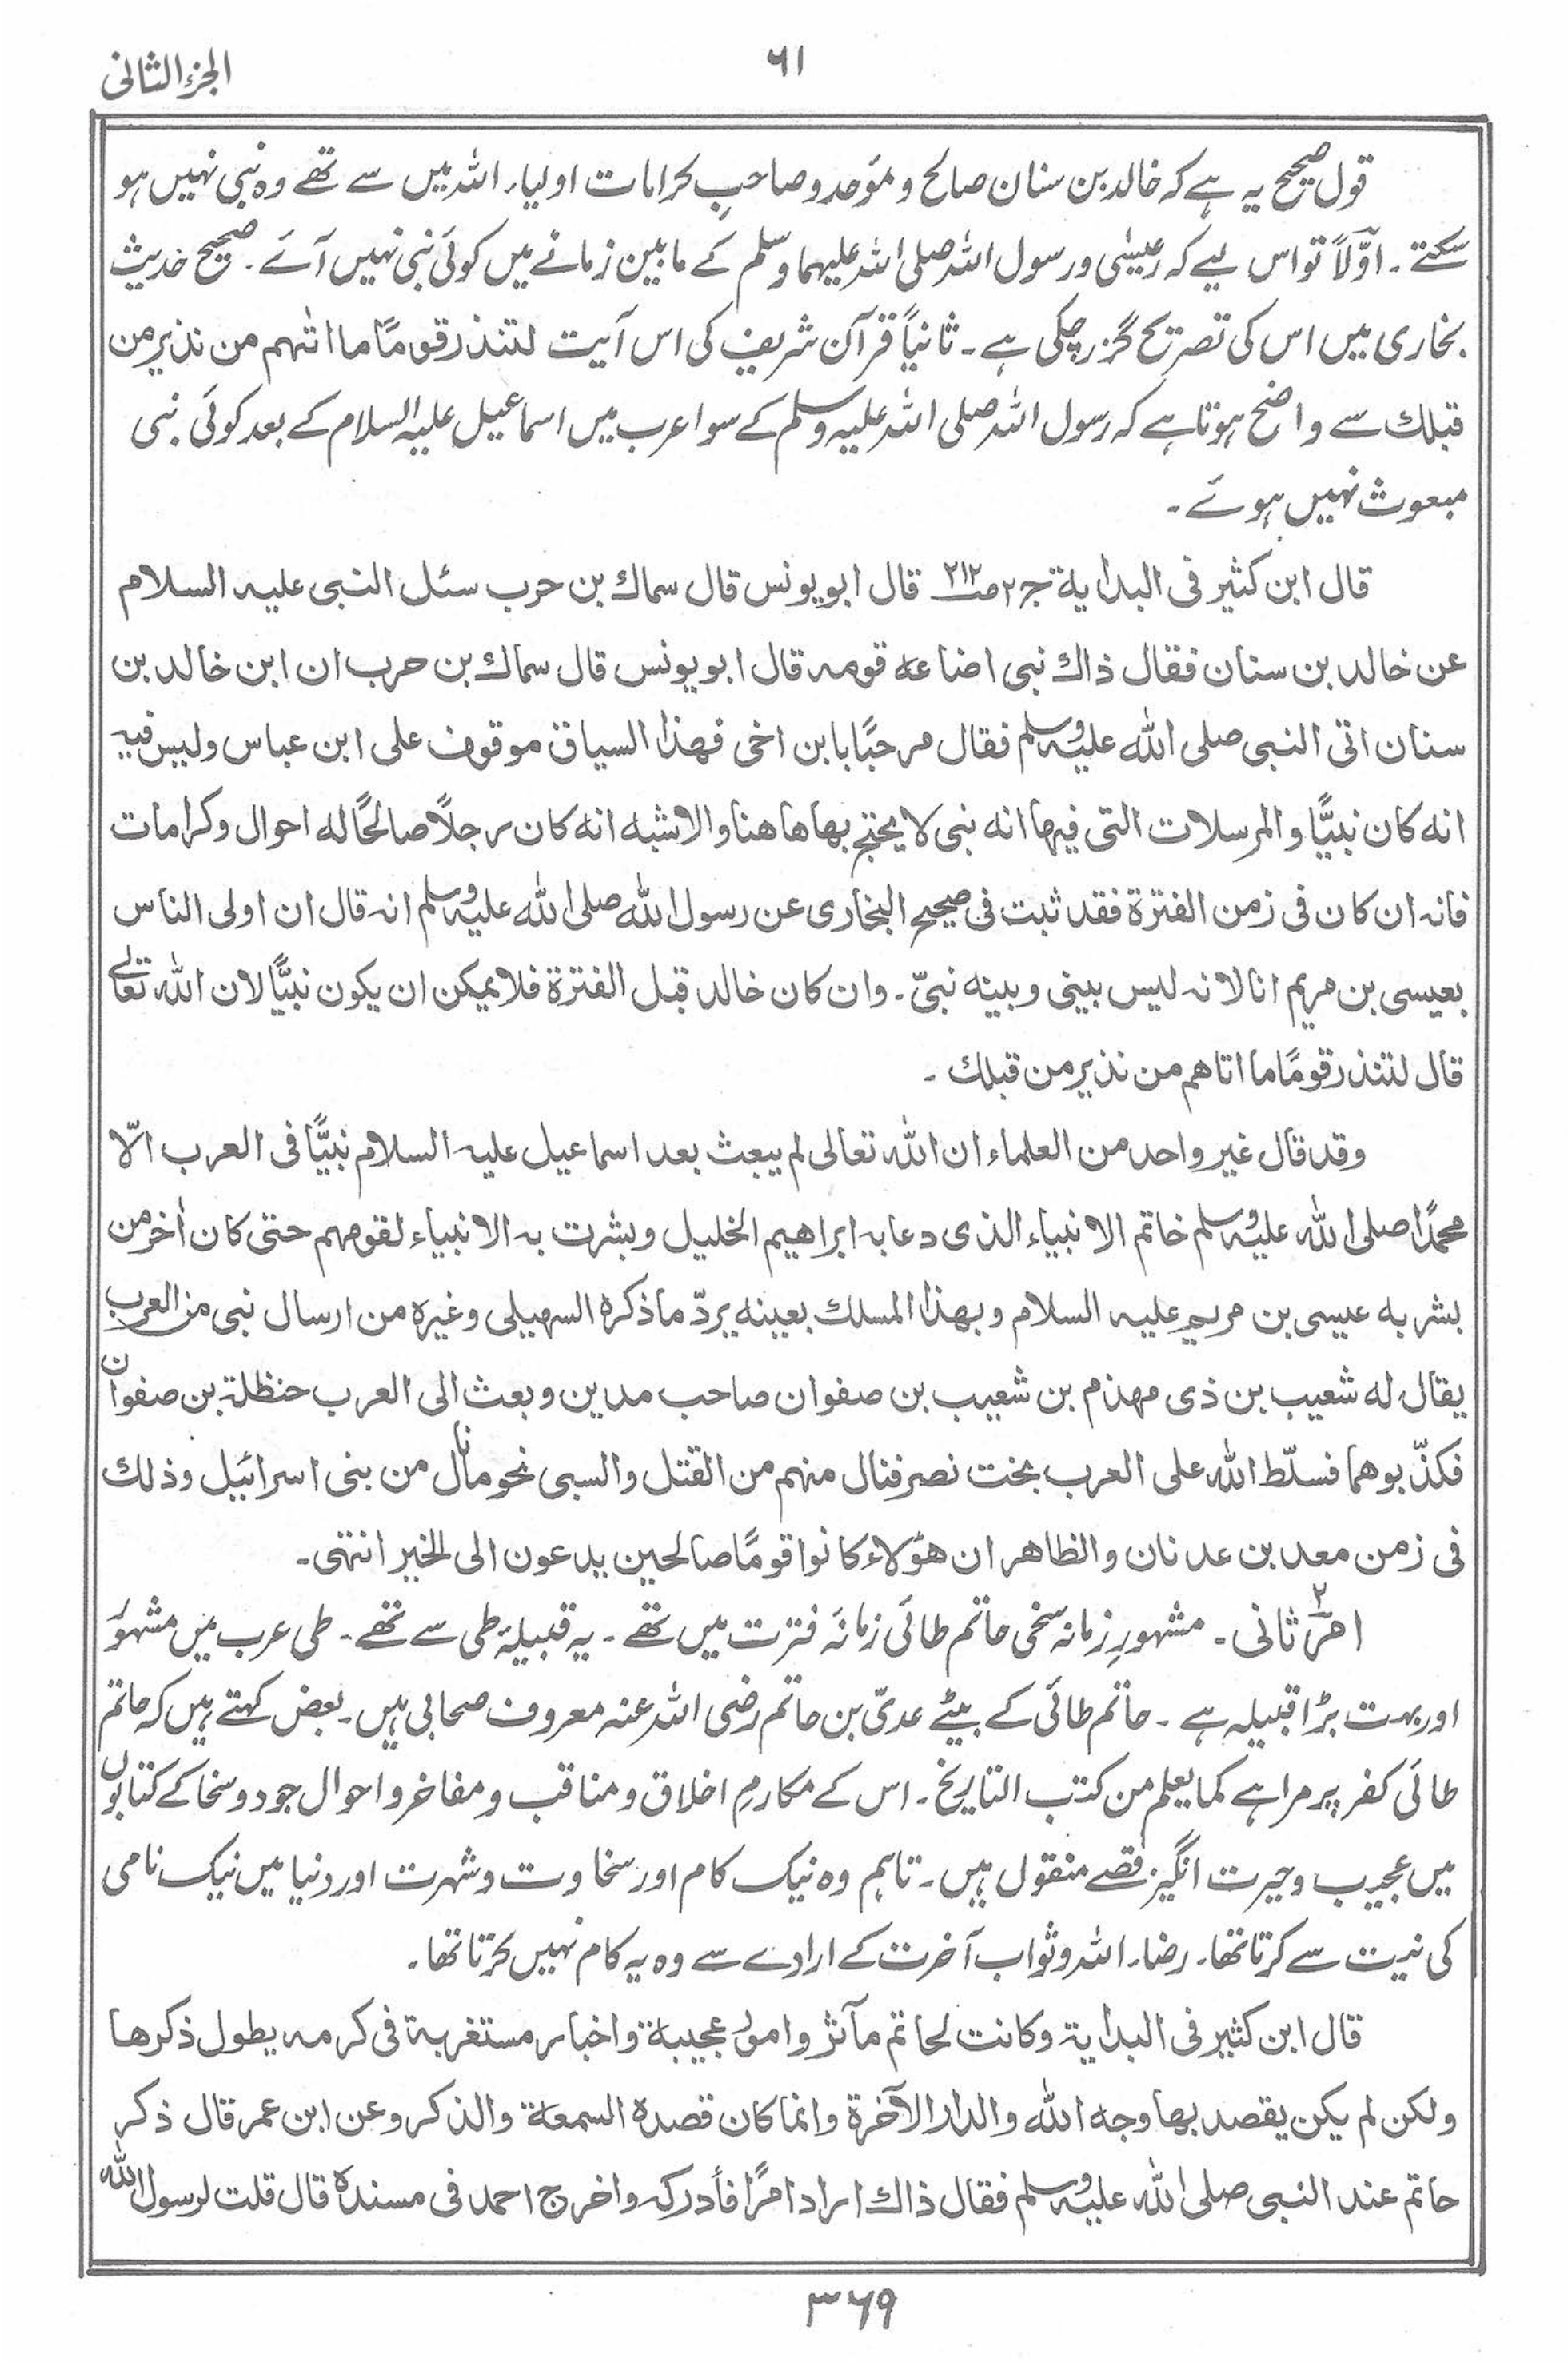 الجزء الثانی
۶۱
قول صحیح یہ ہے کہ خالد بن سنان صالح و مؤحد و صاحبِ کرامات اولیاء اللہ میں سے تھے وہ نبی نہیں ہو
سکتے ۔ اوّلاً تو اس لیے کہ عیسٰی و رسول اللہ صلی اللہ علیہما وسلم کے مابین زمانے میں کوئی نبی نہیں آئے ۔ صحیح حدیث
بخاری میں اس کی تصریح گزر چکی ہے ۔ ثانیاً قرآن شریف کی اس آیت لتنذر قومًا ما اتٰہم من نذیر من
قبلك سے واضح ہوتا ہے کہ رسول اللہ صلی اللہ علیہ وسلم کے سوا عرب میں اسماعیل علیہ السلام کے بعد کوئی نبی
مبعوث نہیں ہوئے ۔
قال ابن کثیر فی البدایة ج۲ ص۲۱۲ قال ابو یونس قال سماك بن حرب سئل النبی علیہ السلام
عن خالد بن سنان فقال ذاك نبی اضاعه قومه قال ابو یونس قال سماك بن حرب ان ابن خالد بن
سنان اتی النبی صلی الله علیہ وسلم فقال مرحبًا بابن اخی فهذا السیاق موقوف علی ابن عباس ولیس فیہ
انه کان نبیًّا والمرسلات التی فیها انه نبی لا یحتج بها هاهنا والاشبه انه کان رجلاً صالحًا له احوال وکرامات
فانہ ان کان فی زمن الفترة فقد ثبت فی صحیح البخاری عن رسول الله صلی الله علیہ وسلم انہ قال ان اولی الناس
بعیسی بن مریم انا لانہ لیس بینی وبینه نبیّ ۔ وان کان خالد قبل الفترة فلا یمکن ان یکون نبیًّا لان الله تعالے
قال لتنذر قومًا ما اتاهم من نذیر من قبلك ۔
وقد قال غیر واحد من العلماء ان الله تعالی لم یبعث بعد اسماعیل علیہ السلام نبیًّا فی العرب الّا
محمدًا صلی الله علیہ وسلم خاتم الانبیاء الذی دعا بہ ابراهیم الخلیل وبشرت بہ الانبیاء لقومهم حتی کان اٰخر من
بشر به عیسی بن مریم علیہ السلام وبهذا المسلك بعینه یردّ ما ذکرہ السهیلی وغیرہ من ارسال نبی من العرب
یقال له شعیب بن ذی مهذم بن شعیب بن صفوان صاحب مدین وبعث الی العرب حنظلة بن صفوان
فکذّبوهما فسلّط الله علی العرب بخت نصر فنال منهم من القتل والسبی نحو ما نال من بنی اسرائیل وذلك
فی زمن معد بن عدنان والظاهر ان هؤلاء کانوا قومًا صالحین یدعون الی الخیر انتهی ۔
امرِ ثانی ۔ مشہورِ زمانہ سخی حاتم طائی زمانۂ فترت میں تھے ۔ یہ قبیلۂ طی سے تھے ۔ طی عرب میں مشہور
اور بہت بڑا قبیلہ ہے ۔ حاتم طائی کے بیٹے عدیّ بن حاتم رضی اللہ عنہ معروف صحابی ہیں ۔ بعض کہتے ہیں کہ حاتم
طائی کفر پر مرا ہے کما یعلم من کتب التاریخ ۔ اس کے مکارمِ اخلاق و مناقب و مفاخر و احوال جود و سخا کے کتابوں
میں عجیب و حیرت انگیز قصے منقول ہیں ۔ تاہم وہ نیک کام اور سخاوت و شہرت اور دنیا میں نیک نامی
کی نیت سے کرتا تھا ۔ رضاء اللہ و ثواب آخرت کے ارادے سے وہ یہ کام نہیں کرتا تھا ۔
قال ابن کثیر فی البدایة وکانت لحاتم مآثر وامور عجیبة واخبار مستغربة فی کرمه یطول ذکرها
ولکن لم یکن یقصد بها وجه الله والدار الآخرة وانما کان قصدہ السمعة والذکر وعن ابن عمر قال ذکر
حاتم عند النبی صلی الله علیہ وسلم فقال ذاك اراد امرًا فأدرکہ واخرج احمد فی مسندہ قال قلت لرسول الله
۳۶۹